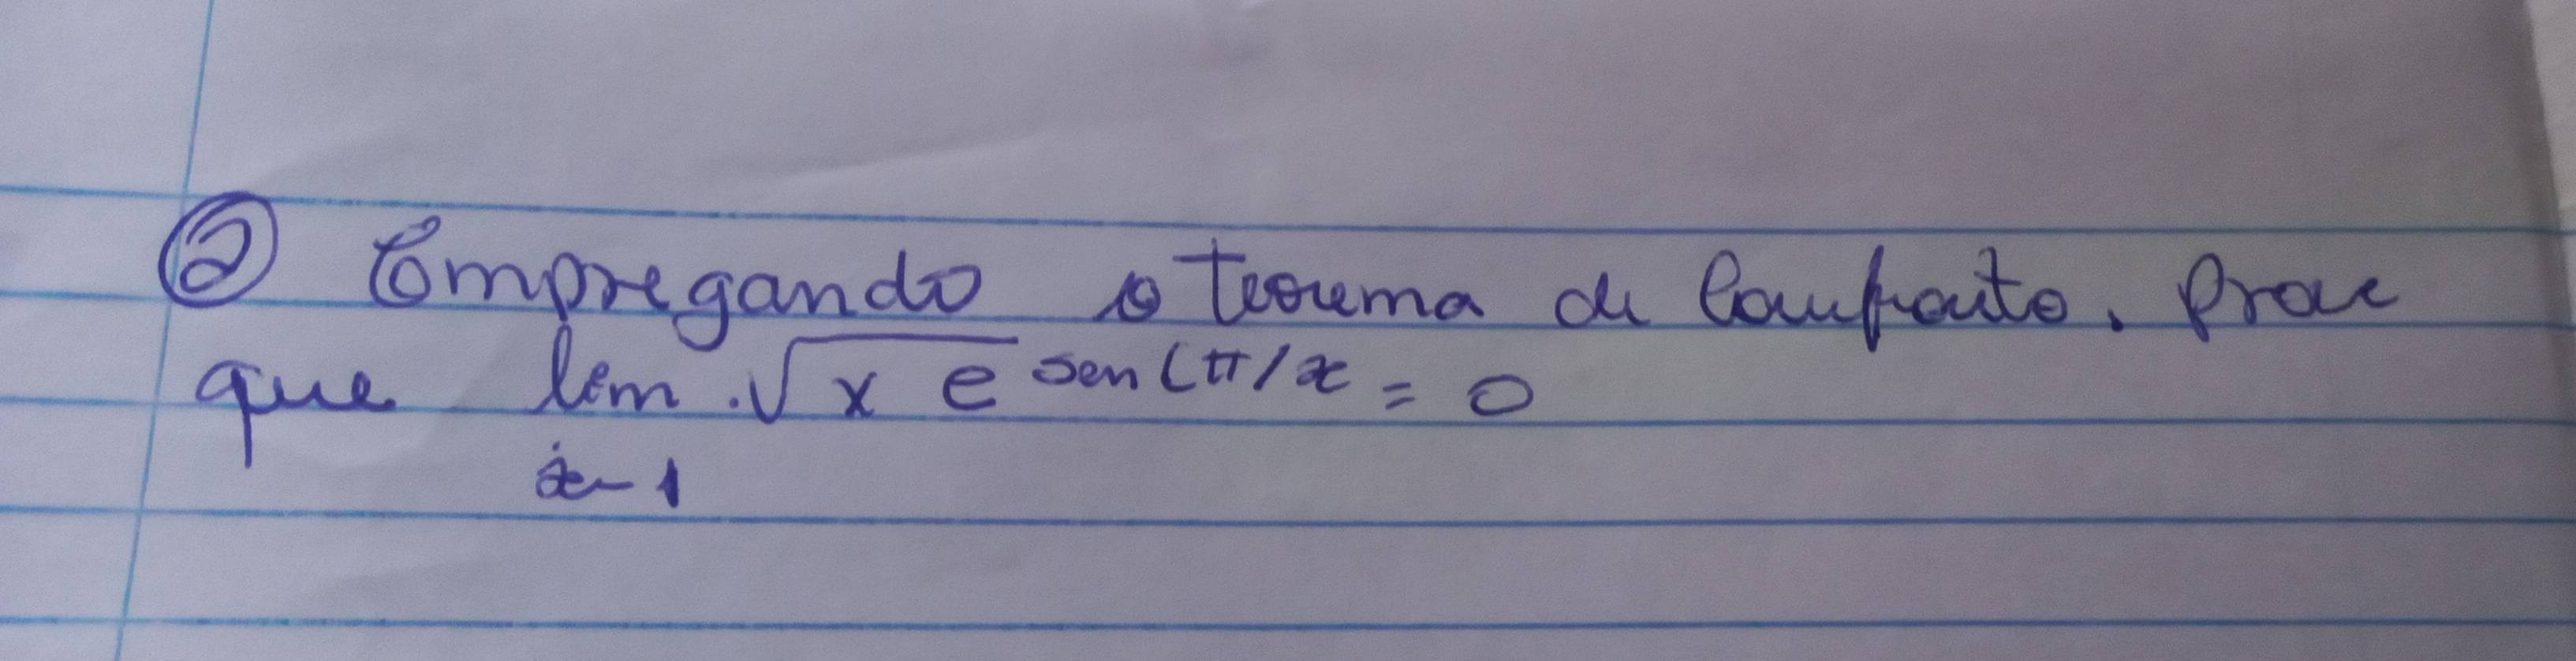 ② Empregando o teorema de Confronto. Prove
que lim √x e sen(π/x = 0
x→1